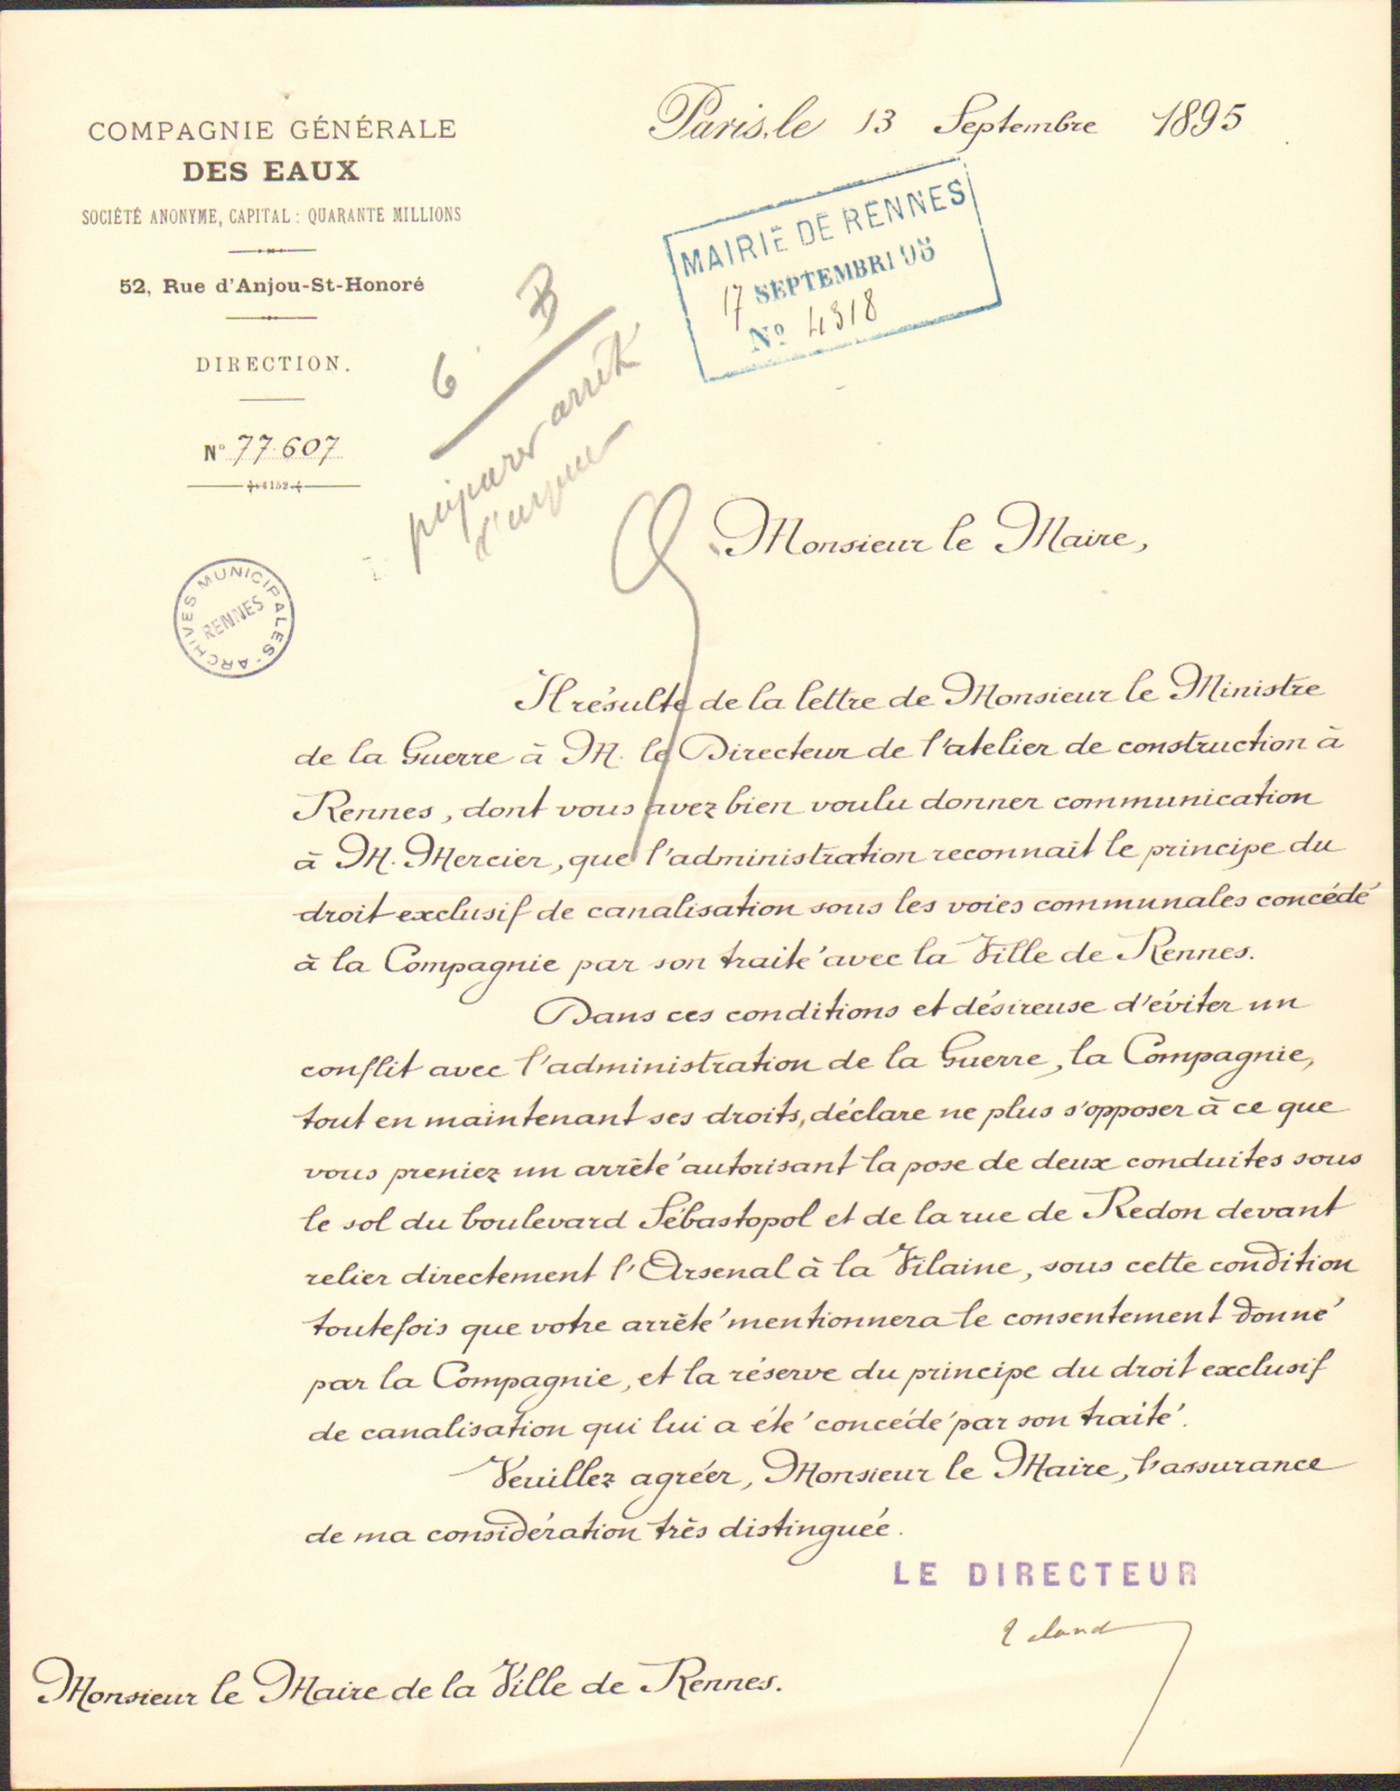 COMPAGNIE GÉNÉRALE
DES EAUX
SOCIÉTÉ ANONYME, CAPITAL : QUARANTE MILLIONS
52, Rue d'Anjou-St-Honoré
DIRECTION.
N° 77.607
4152
Paris, le 13 Septembre 1895
MAIRIE DE RENNES
17 SEPTEMBRE 95
N° 4318
6. B
préparer arrêté
d'urgence
ARCHIVES MUNICIPALES
RENNES
Monsieur le Maire,
Il résulte de la lettre de Monsieur le Ministre
de la Guerre à M. le Directeur de l'atelier de construction à
Rennes, dont vous avez bien voulu donner communication
à M. Mercier, que l'administration reconnait le principe du
droit exclusif de canalisation sous les voies communales concédé
à la Compagnie par son traité avec la Ville de Rennes.
Dans ces conditions et désireuse d'éviter un
conflit avec l'administration de la Guerre, la Compagnie,
tout en maintenant ses droits, déclare ne plus s'opposer à ce que
vous preniez un arrêté autorisant la pose de deux conduites sous
le sol du boulevard Sébastopol et de la rue de Redon devant
relier directement l'Arsenal à la Vilaine, sous cette condition
toutefois que votre arrêté mentionnera le consentement donné
par la Compagnie, et la réserve du principe du droit exclusif
de canalisation qui lui a été concédé par son traité.
Veuillez agréer, Monsieur le Maire, l'assurance
de ma considération très distinguée.
LE DIRECTEUR
Monsieur le Maire de la Ville de Rennes.